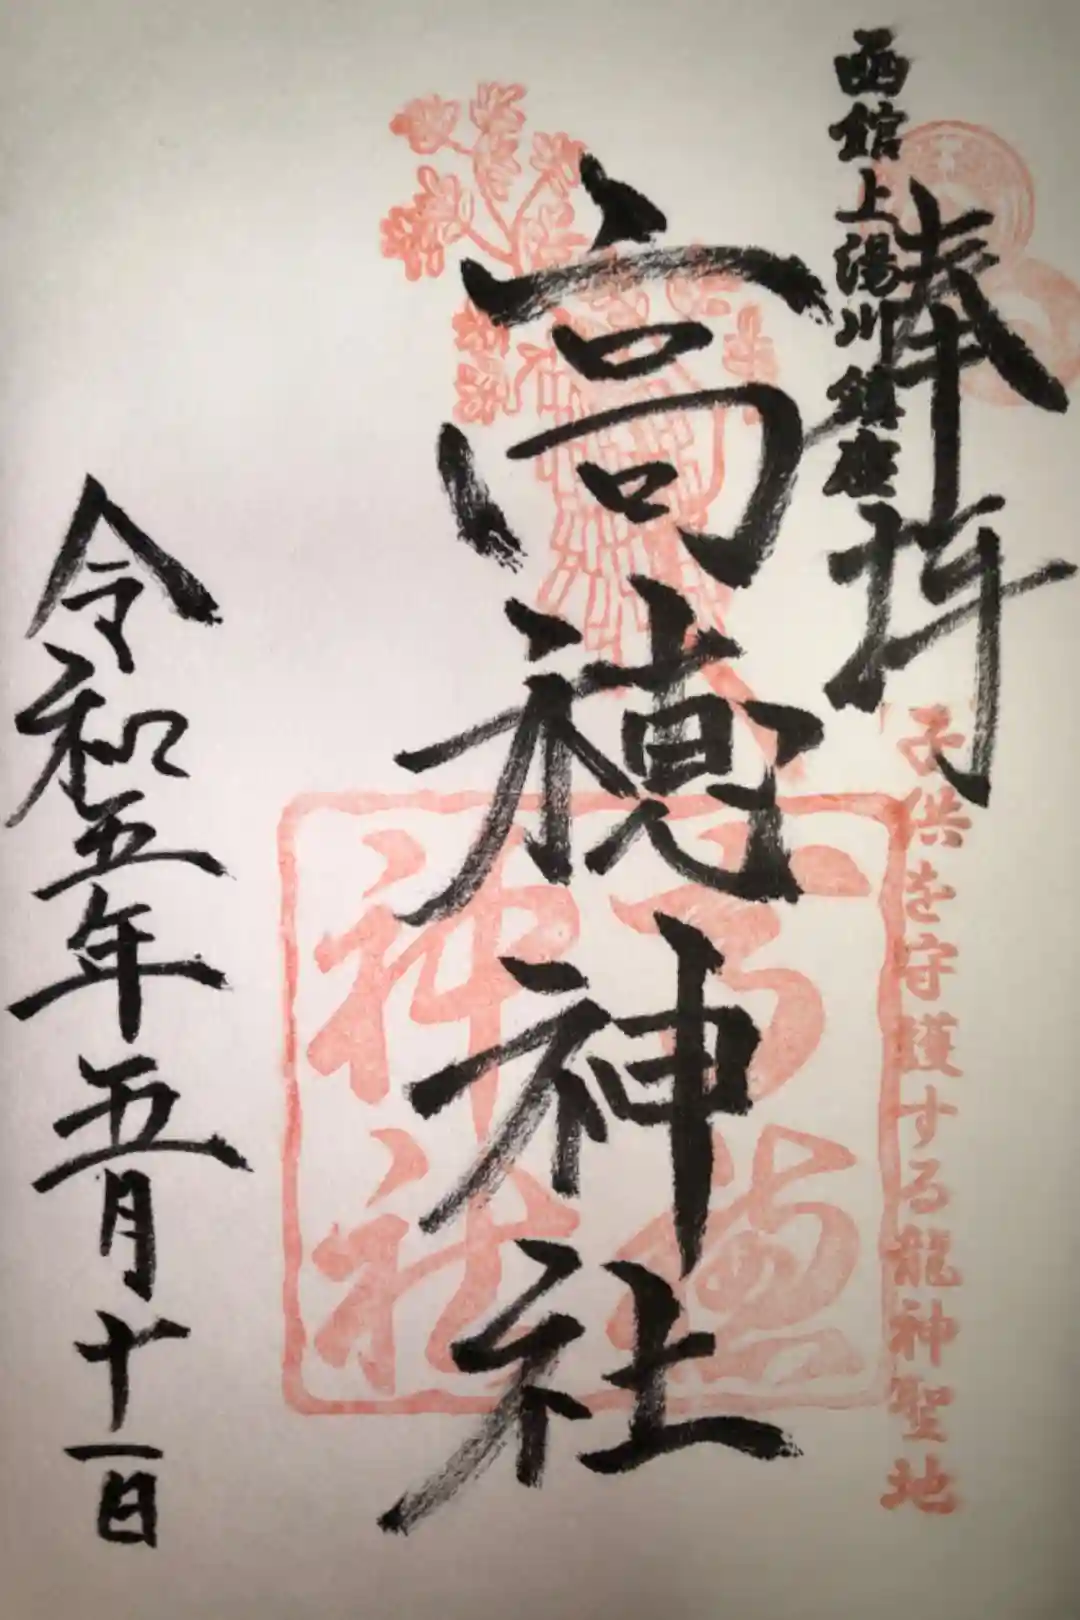 函館上湯川鎮座
奉拝
子供を守護する龍神聖地
高穂神社
高穂
神社
令和五年五月十一日